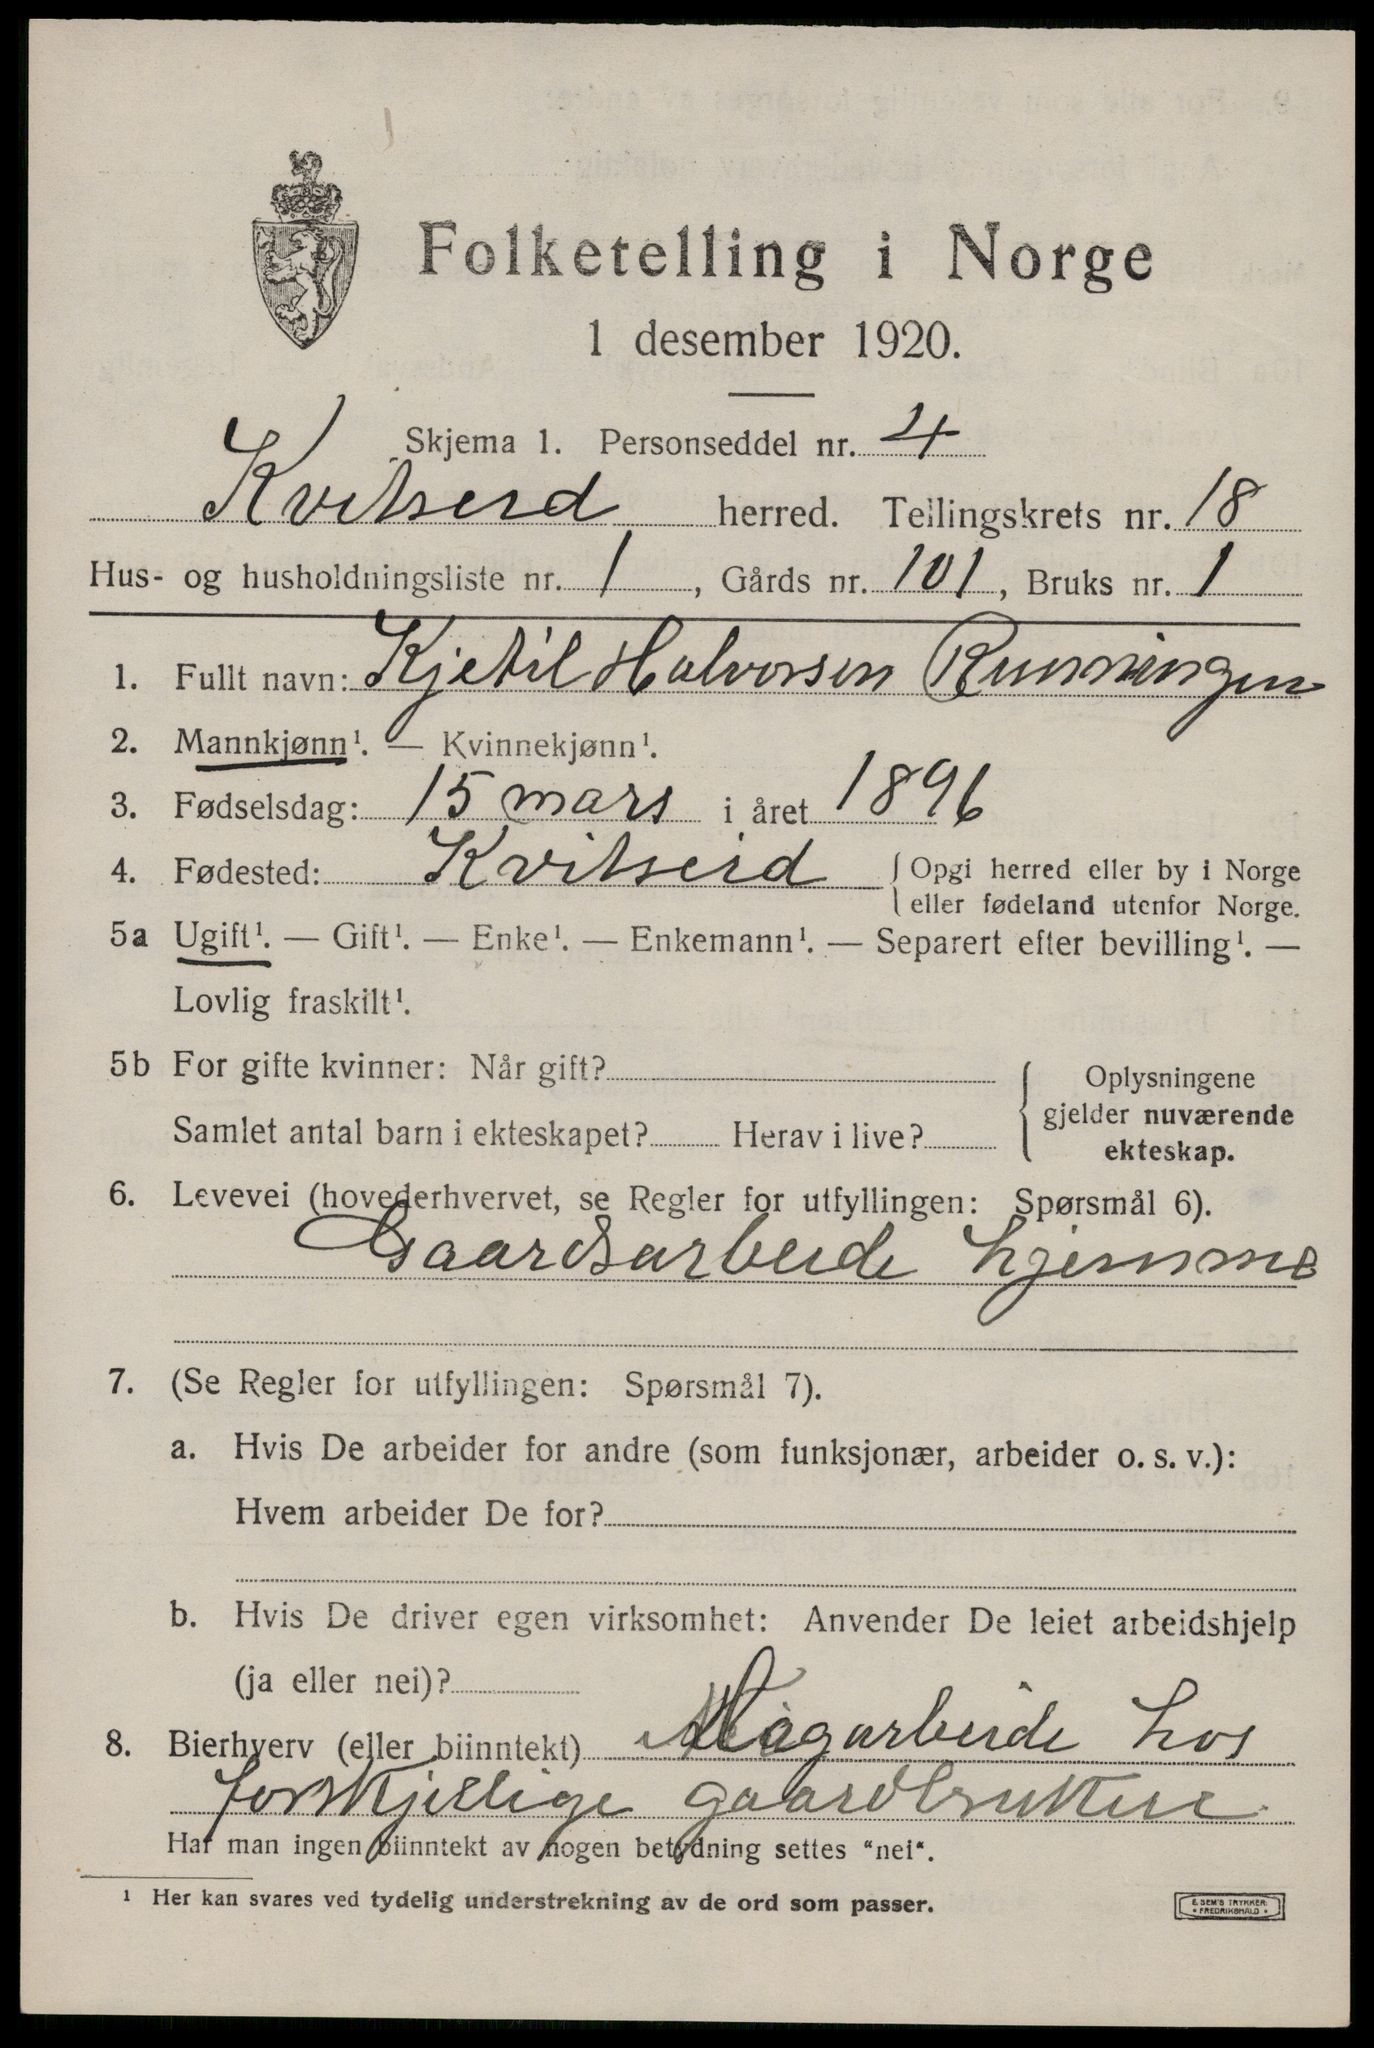 Folketelling i Norge
1 desember 1920.
Skjema 1. Personseddel nr. 4
Kvitseid herred. Tellingskrets nr. 18
Hus- og husholdningsliste nr. 1, Gårds nr. 101, Bruks nr. 1
1. Fullt navn: Kjetil Halvorsen Runningen
2. Mannkjønn¹. — Kvinnekjønn¹.
3. Fødselsdag: 15 mars i året 1896
4. Fødested: Kvitseid { Opgi herred eller by i Norge
eller fødeland utenfor Norge.
5a Ugift¹. — Gift¹. — Enke¹. — Enkemann¹. — Separert efter bevilling¹. —
Lovlig fraskilt¹.
5b For gifte kvinner: Når gift?
Samlet antal barn i ekteskapet? Herav i live?
{ Oplysningene
gjelder nuværende
ekteskap.
6. Levevei (hovederhvervet, se Regler for utfyllingen: Spørsmål 6).
Gaardsarbeide hjemme
7. (Se Regler for utfyllingen: Spørsmål 7).
a. Hvis De arbeider for andre (som funksjonær, arbeider o. s. v.):
Hvem arbeider De for?
b. Hvis De driver egen virksomhet: Anvender De leiet arbeidshjelp
(ja eller nei)?
8. Bierhverv (eller biinntekt) arbeide hos
forskjellige gaardbrukere
Har man ingen biinntekt av nogen betydning settes "nei".
¹ Her kan svares ved tydelig understrekning av de ord som passer.
E. SEM'S TRYKKERI
FREDRIKSHALD